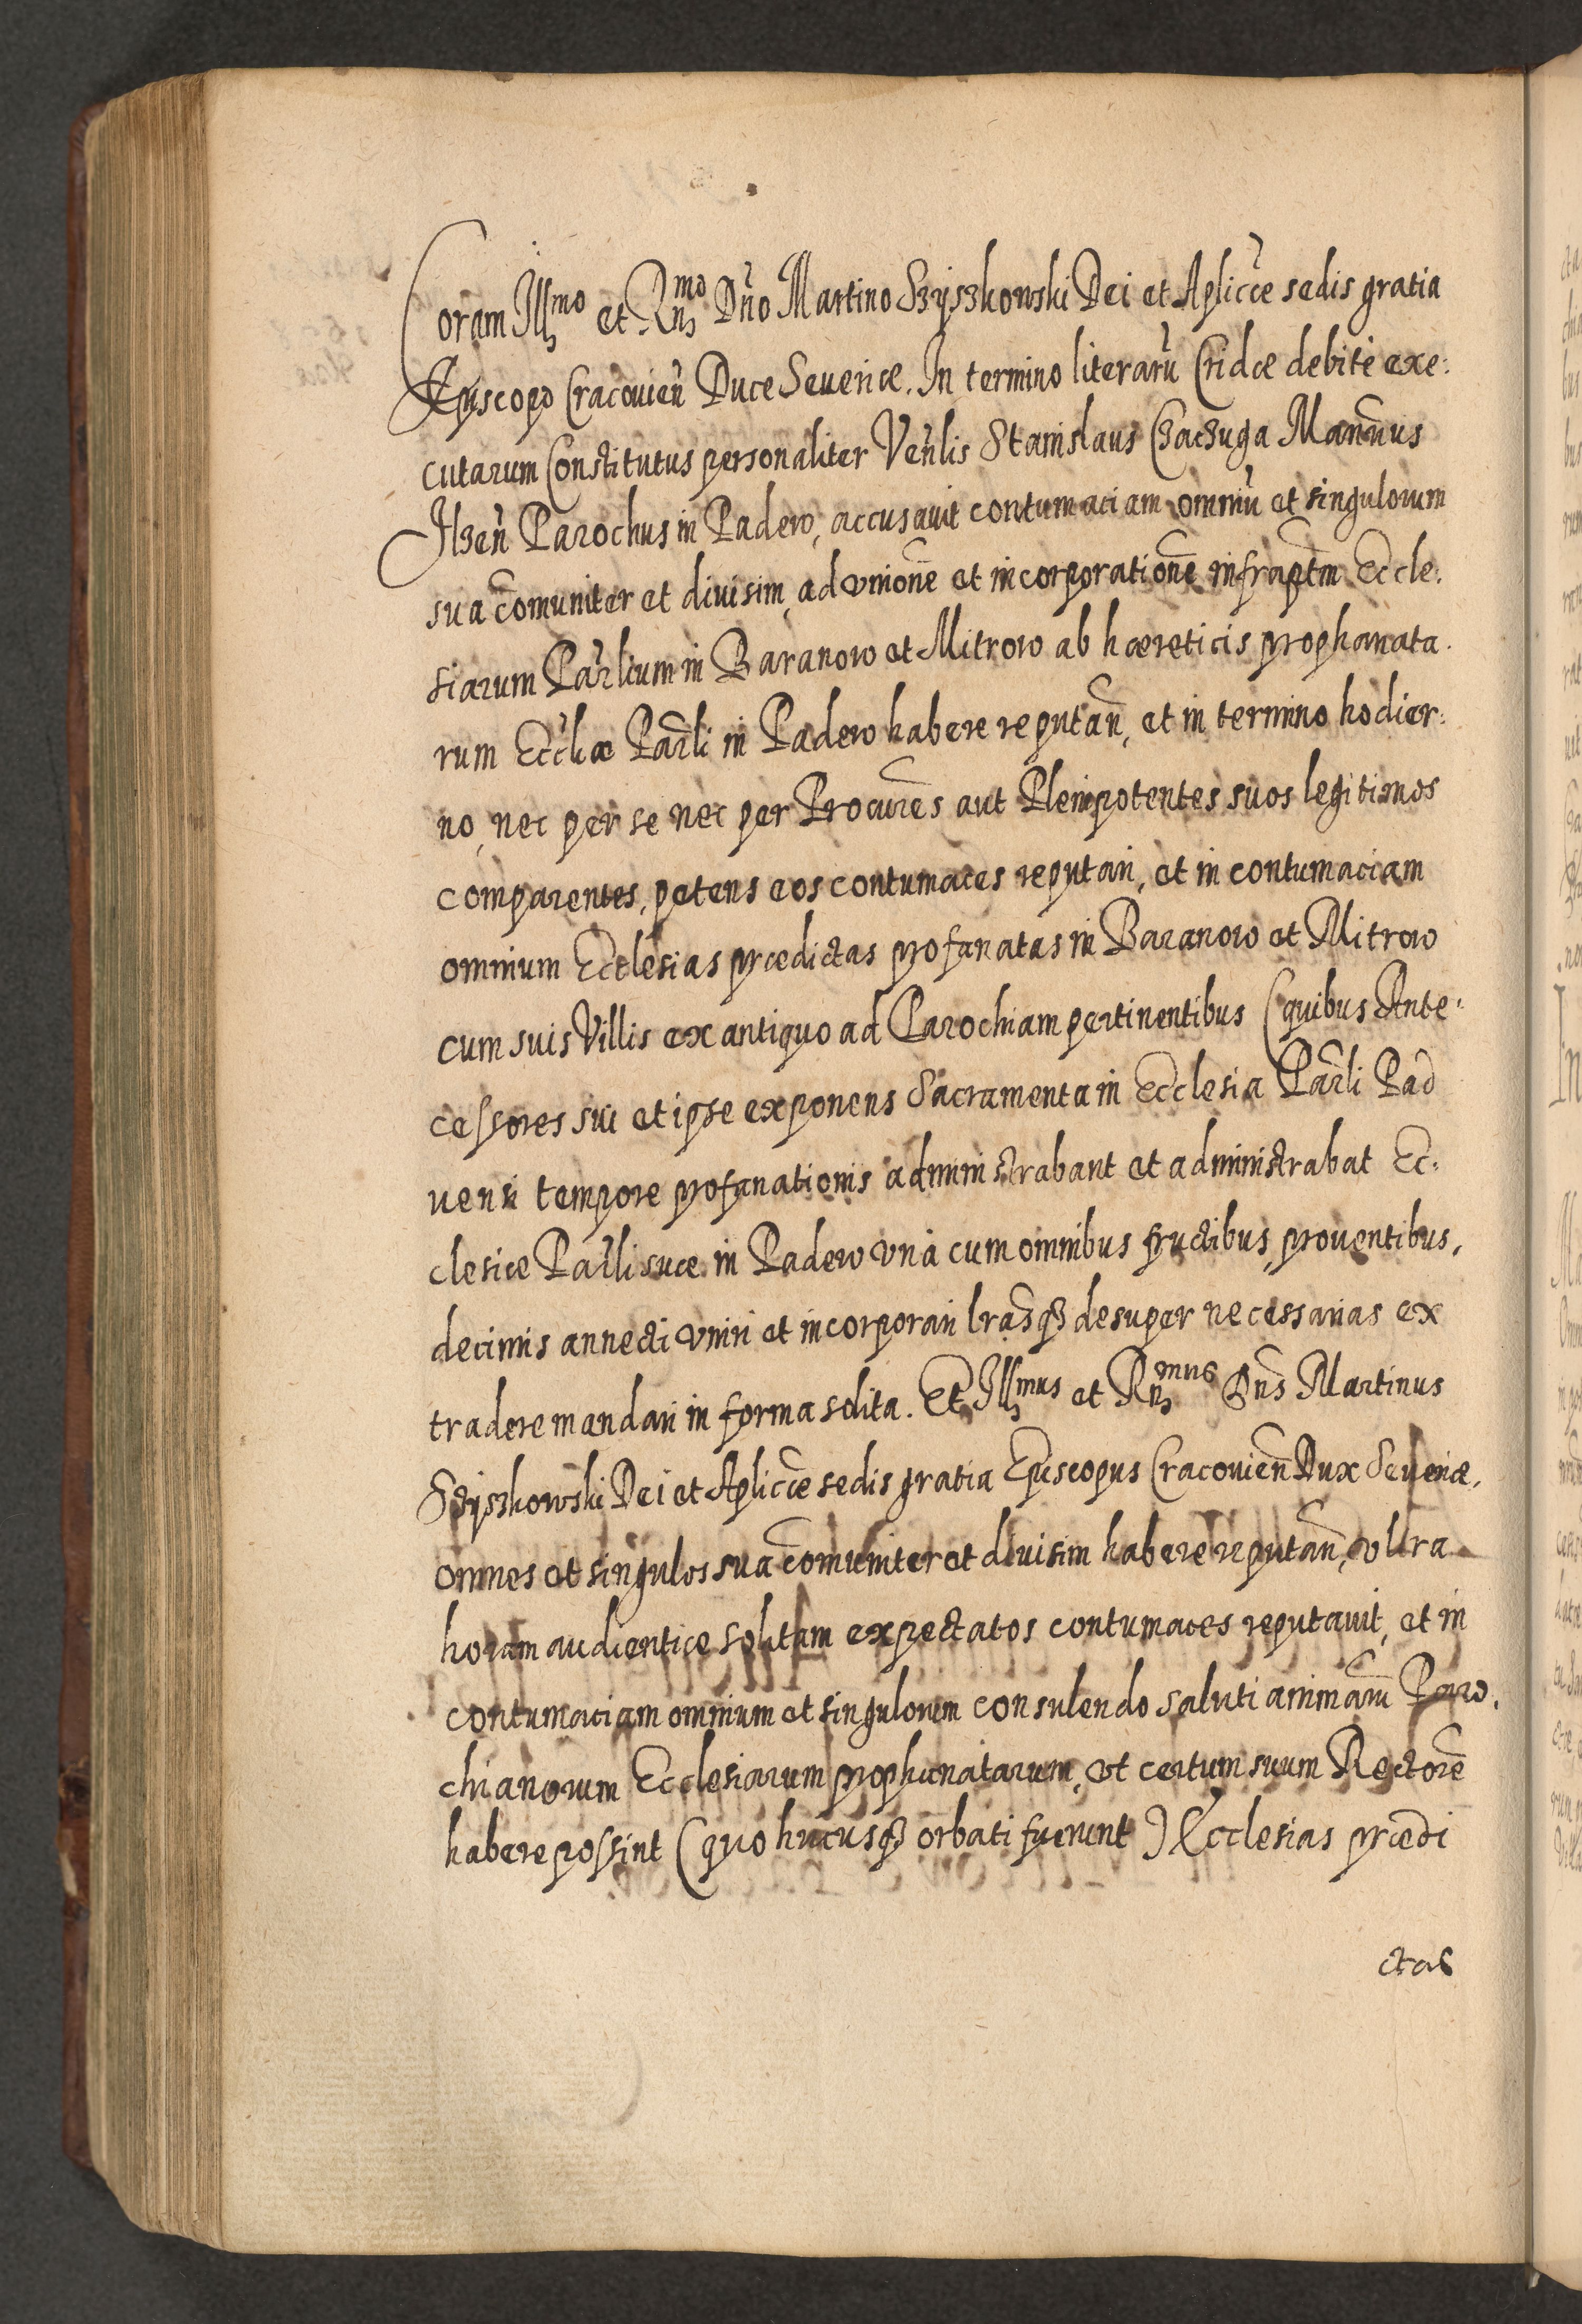 Coram Illmo et Rndmo Dño Martino Szyszkowski Dei et Aplicæ sedis gratia
Episcopo Cracovień Duce Severiæ. In termino literarũ Cridæ debitè exe:
cutarum Constitutus personaliter Veñlis Stanislaus Czaczuga Mansñus
Ilzeñ Parochus in Padew, accusavit contumaciam omniũ et singulorum
sua cõmuniter et divisim, ad unionẽ et incorporationẽ infraptm Eccle:
siarum Parlium in Baranow et Mitrow ab hæreticis prophanata:
rum Eccliæ Parli in Padew habere reputañ, et in termino hodier:
no, nec per se nec per Procures aut Plenipotentes suos legitimos
comparentes, petens eos contumaces reputari, et in contumaciam
omnium Ecclesias prædictas profanatas in Baranow et Mitrow
cum suis Villis ex antiquo ad Parochiam pertinentibus (quibus Ante:
cessores sui et ipse exponens Sacramenta in Ecclesia Parli Pad
vensi tempore profanationis administrabant et administrabat Ec:
clesiæ Parli suæ in Padew unà cum omnibus fructibus, proventibus,
decimis annecti uniri et incorporari lrasq3 desuper necessarias ex
tradere mandari in forma solita. Et Illmus et Rndmus Dns Martinus
Szyszkowski Dei et Aplicæ sedis gratia Episcopus Cracovieñ Dux Severiæ,
omnes et singulos sua cõmuniter et divisim habere reputañ, ultra
horam audientiæ solitam expectatos contumaces reputavit, et in
contumaciam omnium et singulorum consulendo saluti animarũ Paro:
chianorum Ecclesiarum prophanatarum, ut certum suum Rectorẽ
habere possint (quo hucusq3 orbati fuerunt) Ecclesias prædi
ctas